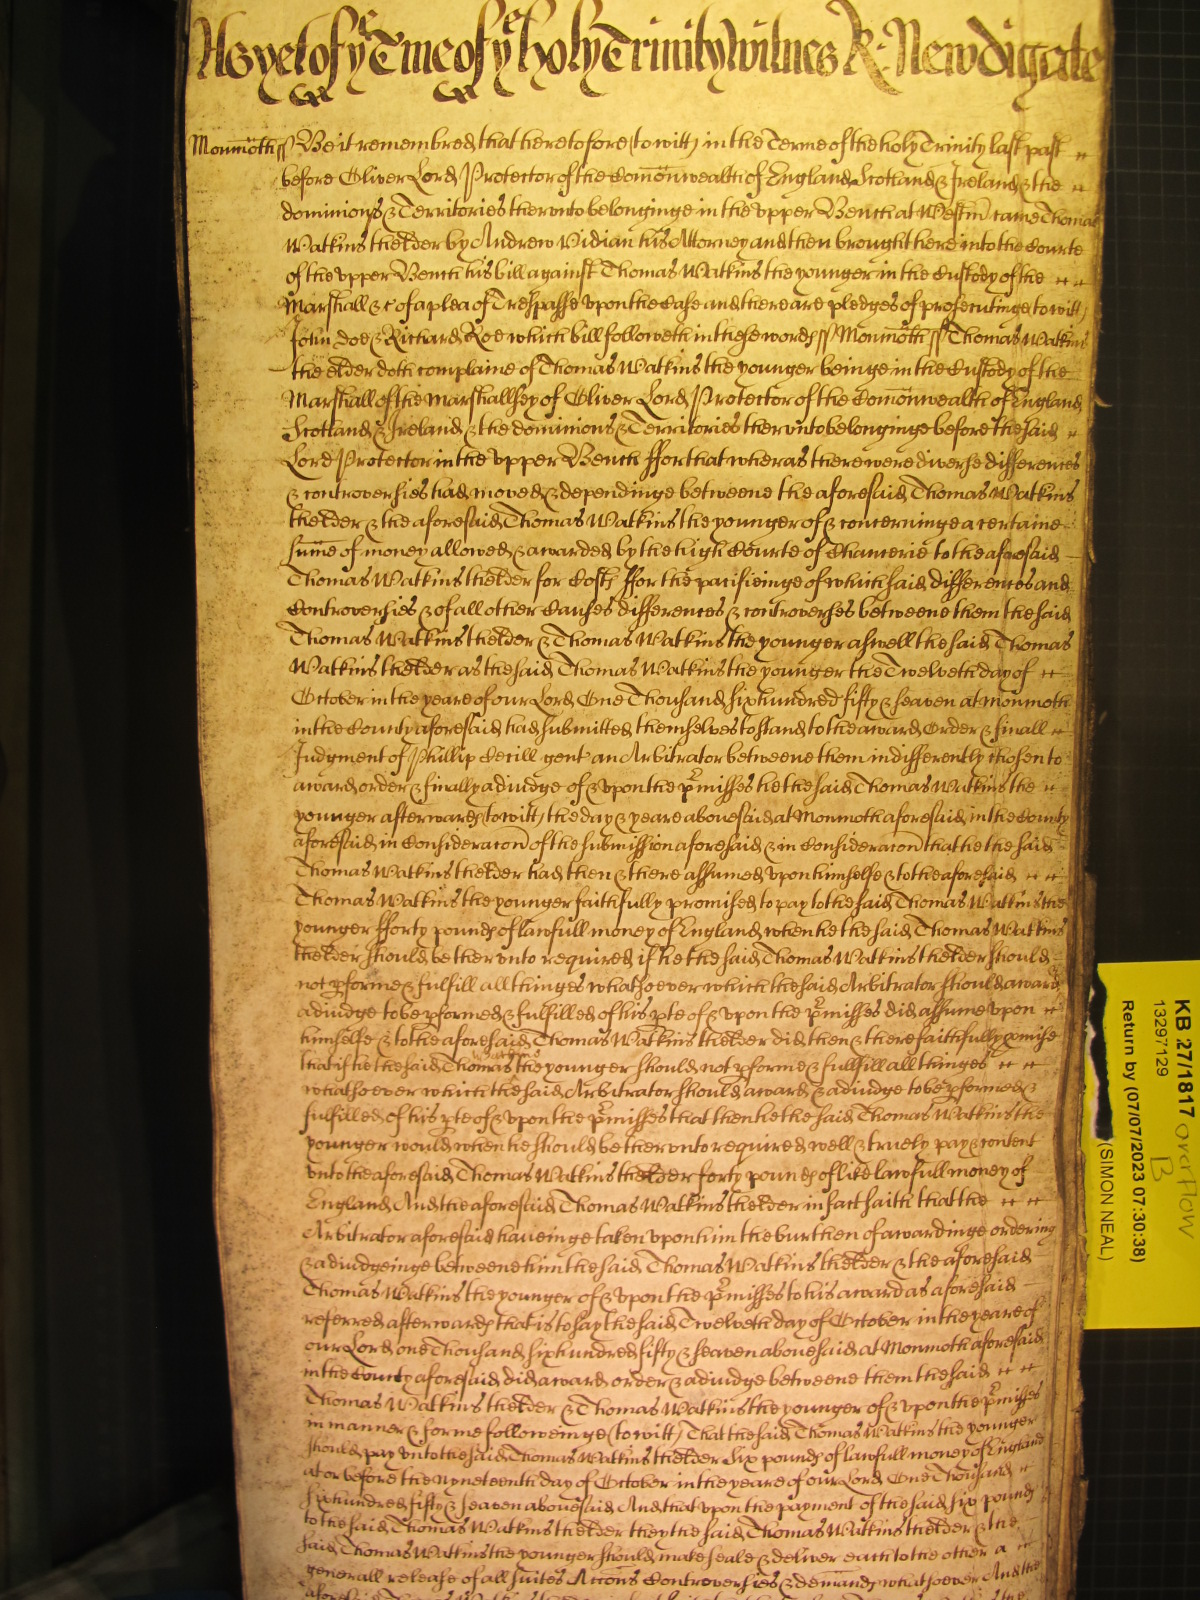 As yet of yᵉ Tme of yᵉ holy Trinity Witnes R: Newdigate
Monmoth ss Be it remembred that heretofore (to witt) in the Terme of the holy Trinity last past
before Oliver Lord Protector of the Comōnwealth of England Scotland & Ireland & the
dominions & Territories therunto belonginge in the upper Bench at Westm̄ came Thomas
Watkins the elder by Andrew Vidian his Attorney and then brought here into the Courte
of the upper Bench his bill against Thomas Watkins the younger in the Custody of the
Marshall &c of a plea of Trespasse upon the Case and there are pledges of prosecutinge to witt
John Doe & Richard Roe which bill followeth in these words ss Monmoth ss Thomas Watkins
the elder doth complaine of Thomas Watkins the younger beinge in the Custody of the
Marshall of the Marshallsey of Oliver Lord Protector of the Comōnwealth of England
Scotland & Ireland & the dominions & Territories therunto belonginge before the said
Lord Protector in the upper Bench ffor that wheras there were diverse differences
& controversies had moved & dependinge betweene the aforesaid Thomas Watkins
the elder & the aforesaid Thomas Watkins the younger of & concerninge a certaine
sum̄e of money allowed & awarded by the high Courte of Chancerie to the aforesaid
Thomas Watkins the elder for Costs ffor the pacifieinge of which said differences and
Controversies & of all other Causes differences & controverses betweene them the said
Thomas Watkins the elder & Thomas Watkins the younger aswell the said Thomas
Watkins the elder as the said Thomas Watkins the younger the Twelveth day of
October in the yeare of our Lord One Thousand six hundred fifty & seaven at Monmoth
in the County aforesaid had submitted themselves to stand to the award Order & finall
Judgment of Phillip Cecill gent an Arbitrator betweene them indifferently chosen to
award order & finally adiudge of & upon the p̄misses he the said Thomas Watkins the
younger afterwards (to witt) the day & yeare abovesaid at Monmoth aforesaid in the County
aforesaid in Consideracōn of the submission aforesaid & in Consideracōn that he the said
Thomas Watkins the elder had then & there assumed upon himselfe & to the aforesaid
Thomas Watkins the younger faithfully promised to pay to the said Thomas Watkins the
younger fforty pounds of lawfull money of England when he the said Thomas Watkins
the elder should be therunto required if he the said Thomas Watkins the elder should
not pforme & fulfill all thinges whatsoever which the said Arbitrator should award
adiudge to be pformed & fulfilled of his pte of & upon the p̄misses did assume upon
himselfe & to the aforesaid Thomas Watkins the elder did then & there faithfully pmise
that if he the said Thomas Watkins the younger should not pforme & fullfill all thinges
whatsoever which the said Arbitrator should award & adiudge to be pformed &
fulfilled of his pte of & upon the p̄misses that then he the said Thomas Watkins the
younger would when he should be therunto required well & truely pay & content
unto the aforesaid Thomas Watkins the elder forty pounds of like lawfull money of
England And the aforesaid Thomas Watkins the elder in fact saith that the
Arbitrator aforesaid haveinge taken upon him the burthen of awardinge ordering
& adiudgeinge betweene him the said Thomas Watkins the elder & the aforesaid
Thomas Watkins the younger of & upon the p̄misses to his award as aforesaid
referred afterwards that is to say the said Twelveth day of October in the yeare of
our Lord one Thousand six hundred fifty & seaven abovesaid at Monmoth aforesaid
in the County aforesaid did award order & adiudge betweene them the said
Thomas Watkins the elder & Thomas Watkins the younger of & upon the p̄misses
in manner & forme followeinge (to witt) That the said Thomas Watkins the younger
should pay unto the said Thomas Watkins the elder Six pounds of lawfull money of England
at or before the nyneteenth day of October in the yeare of our Lord One Thousand
six hundred fifty & seaven abovesaid And that upon the payment of the said six pounds
to the said Thomas Watkins the elder they the said Thomas Watkins the elder & the
said Thomas Watkins the younger should make seale & deliver each to the other a
generall release of all suites Accōns Controversies & demands whatsoever And the
KB 27/1817 overflow
13297129 B
Return by (07/07/2023 07:30:38)
(SIMON NEAL)